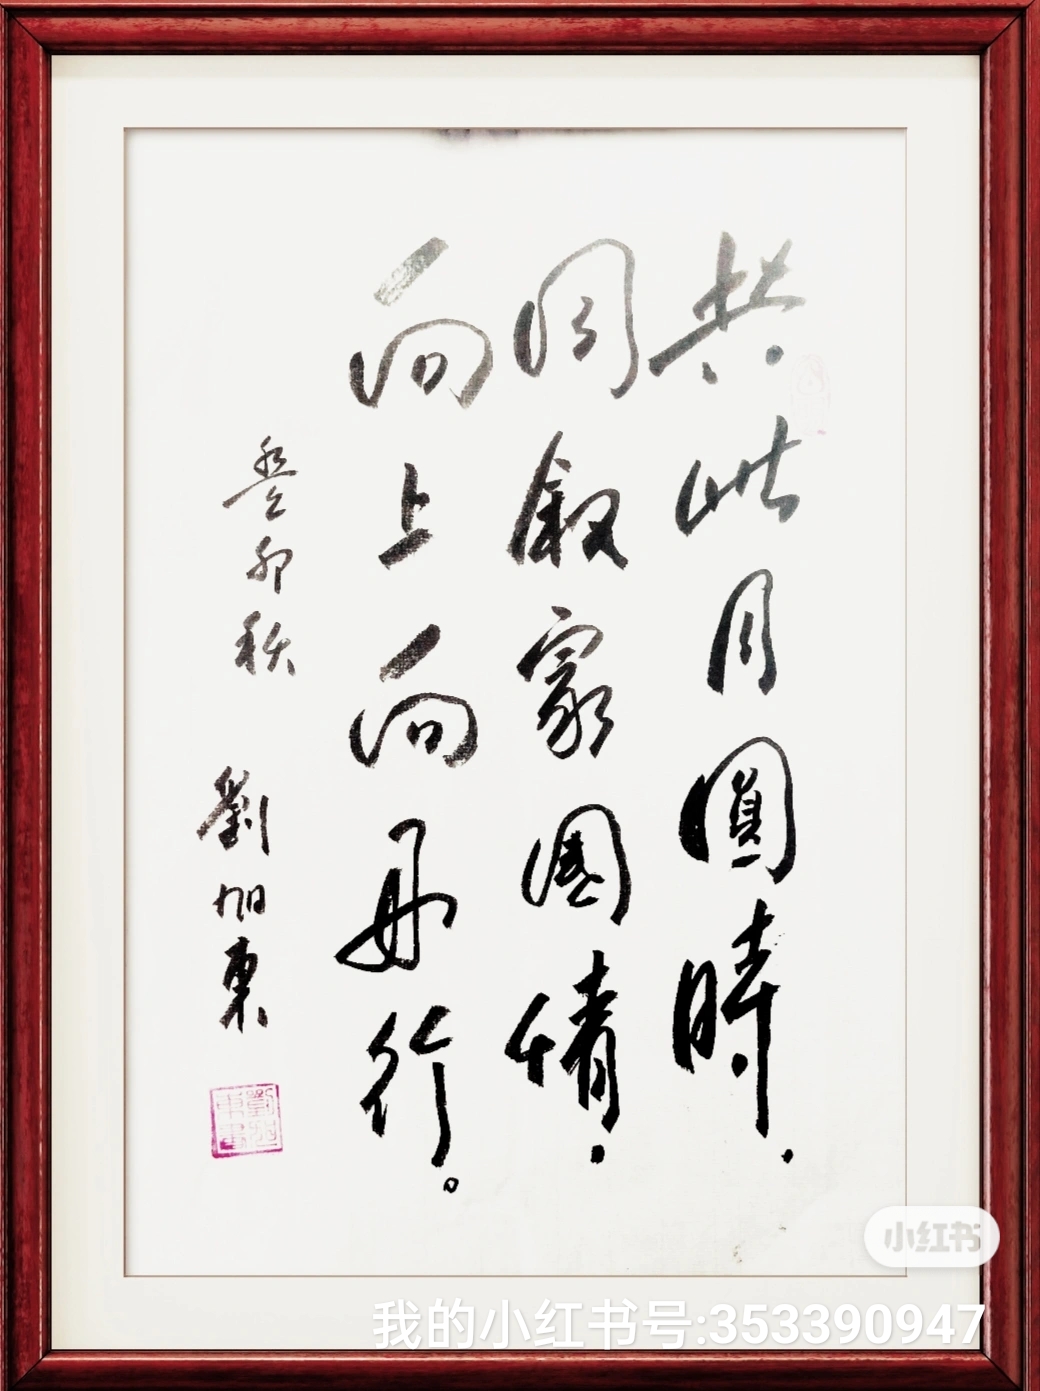 共此月圓時.
同叙家國情.
向上向再行。
癸卯秋
劉旭東
小红书
我的小红书号:353390947